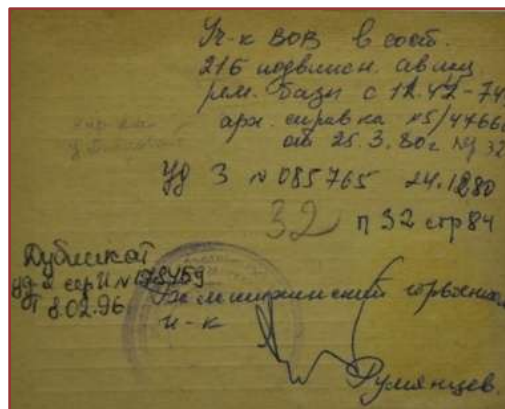 Уч-к ВОВ в сост.
216 подвижн. авиац
рем. базы с 12.42-
арх. справка №5/47666
от 25.3.80г № 32
уд З № 085765 24.1280
32 п 32 стр 84
Дубликат
уд сер И № 178459
от 8.02.96
горвоенком
Н-к
Румянцев.